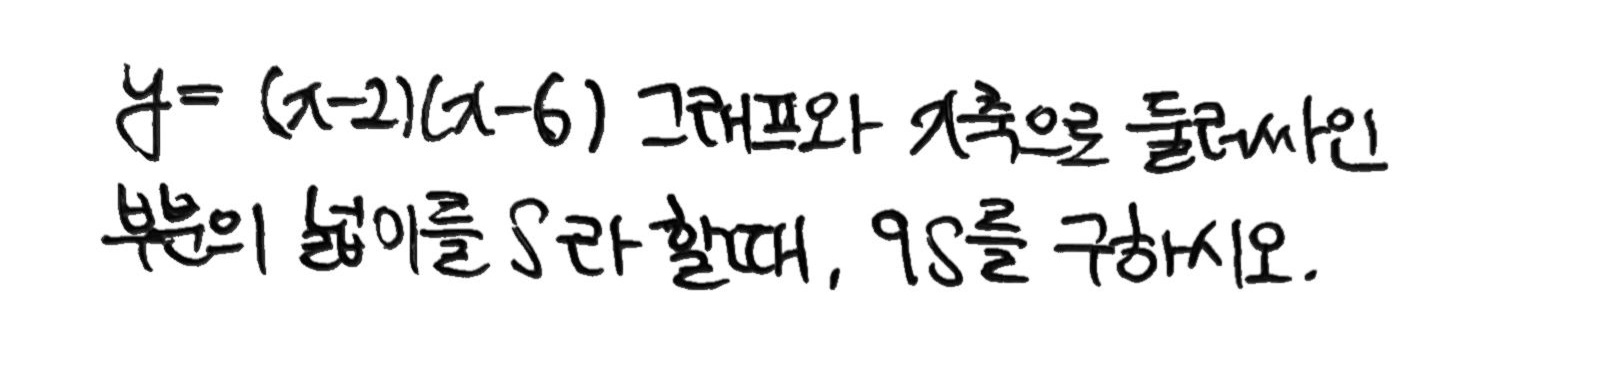 y = (x-2)(x-6) 그래프와 x축으로 둘러싸인
부분의 넓이를 S라 할때, 9S를 구하시오.